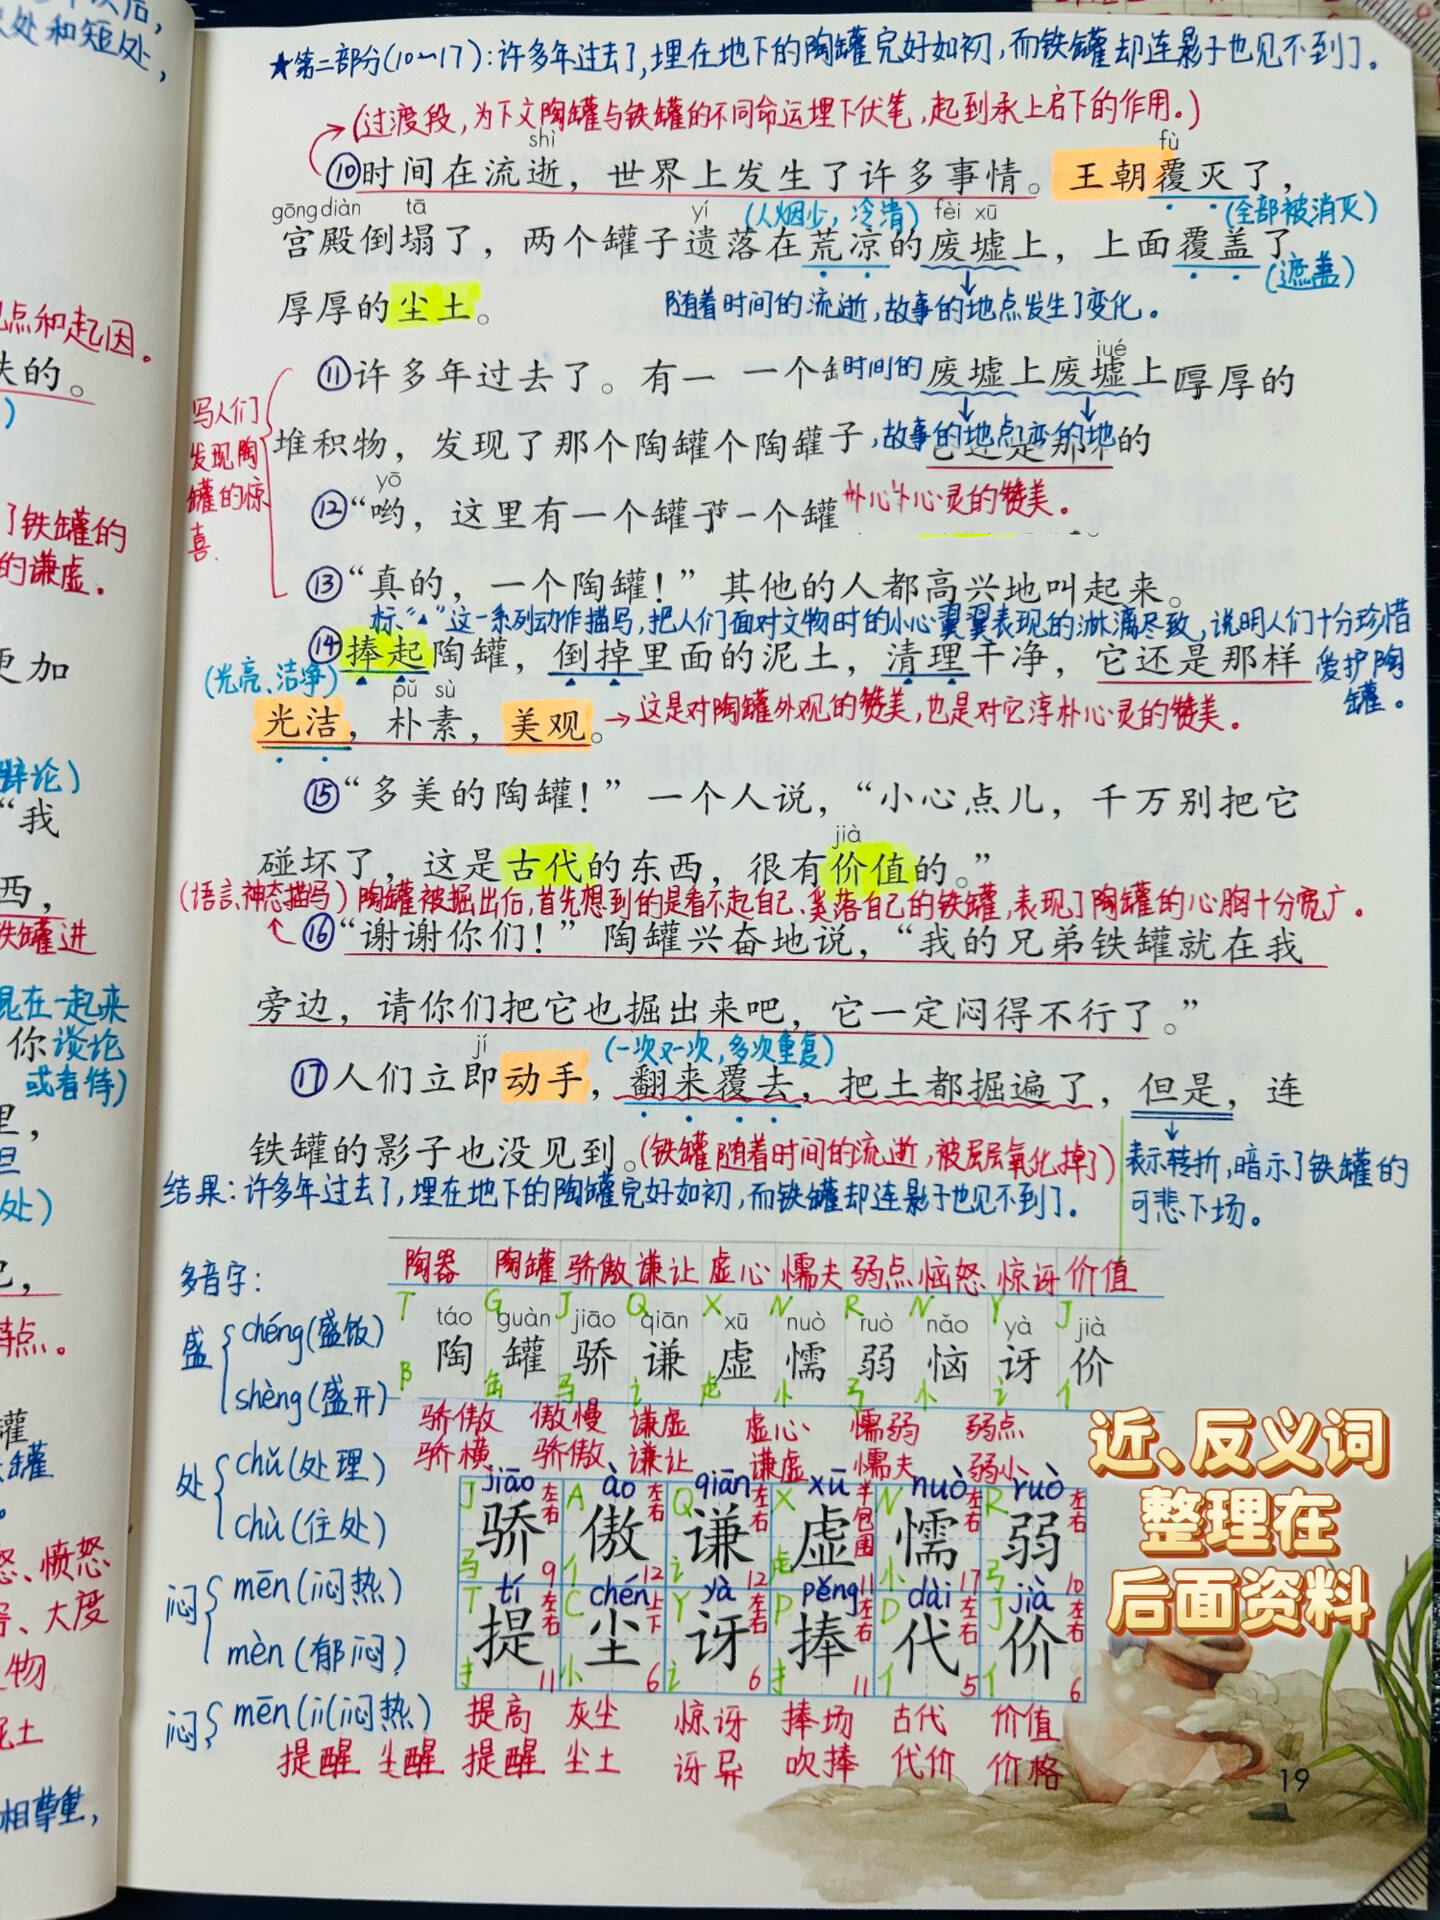 处和短处，
★第二部分(10~17)：许多年过去了，埋在地下的陶罐完好如初，而铁罐却连影子也见不到了。
(过渡段，为下文陶罐与铁罐的不同命运埋下伏笔，起到承上启下的作用。)
shì fù
⑩时间在流逝，世界上发生了许多事情。王朝覆灭了，
gōng diàn tā yí (人烟少，冷清) fèi xū (全部被消灭)
宫殿倒塌了，两个罐子遗落在荒凉的废墟上，上面覆盖了
(遮盖)
厚厚的尘土。
随着时间的流逝，故事的地点发生了变化。
点和起因。
铁的。
写人们发现陶罐的惊喜.
jué
⑪许多年过去了。有一 一个 时间的 废墟上废墟上厚厚的
堆积物，发现了那个陶罐个陶罐子，故事的地点 的地 的
yō
⑫“哟，这里有一个罐 一个罐 朴心 心灵的赞美。
了铁罐的
的谦虚.
⑬“真的，一个陶罐！”其他的人都高兴地叫起来。
标“▲”这一系列动作描写，把人们面对文物时的小心翼翼表现的淋漓尽致，说明人们十分珍惜
爱护陶罐。
⑭捧起陶罐，倒掉里面的泥土，清理干净，它还是那样
(光亮、洁净) pǔ sù
光洁，朴素，美观。→这是对陶罐外观的赞美，也是对它淳朴心灵的赞美。
更加
辩论)
“我
⑮“多美的陶罐！”一个人说，“小心点儿，千万别把它
jià
碰坏了，这是古代的东西，很有价值的。”
西，
铁罐进
(语言、神态描写)陶罐被掘出后，首先想到的是看不起自己、奚落自己的铁罐，表现了陶罐的心胸十分宽广。
⑯“谢谢你们！”陶罐兴奋地说，“我的兄弟铁罐就在我
旁边，请你们把它也掘出来吧，它一定闷得不行了。”
混在一起来
你谈论
或者待)
jí (一次又一次，多次重复)
⑰人们立即动手，翻来覆去，把土都掘遍了，但是，连
铁罐的影子也没见到。(铁罐随着时间的流逝，被层层氧化掉了)
表示转折，暗示了铁罐的
可悲下场。
结果：许多年过去了，埋在地下的陶罐完好如初，而铁罐却连影子也见不到了。
处)
多音字：
盛 chéng(盛饭)
shèng(盛开)
处 chǔ(处理)
chù(住处)
闷 mēn(闷热)
mèn(郁闷)
闷 mēn(闷热)
陶器 陶罐 骄傲 谦让 虚心 懦夫 弱点 恼怒 惊讶 价值
T G J Q X N R N Y J
táo guàn jiāo qiān xū nuò ruò nǎo yà jià
陶 罐 骄 谦 虚 懦 弱 恼 讶 价
阝 缶 马 讠 虍 忄 弓 忄 讠 亻
骄傲 傲慢 谦虚 虚心 懦弱 弱点
骄横 骄傲 谦让 谦虚 懦夫 弱小
jiāo ào qiān xū nuò ruò
J 左右 A 左右 Q 左右 X 半包围 N 左右 R 左右
骄 傲 谦 虚 懦 弱
马 9 亻 12 讠 12 虍 11 忄 17 弓 10
tí chén yà pěng dài jià
T 左右 C 上下 Y 左右 P 左右 D 左右 J 左右
提 尘 讶 捧 代 价
扌 11 小 6 讠 6 扌 11 亻 5 亻 6
提高 灰尘 惊讶 捧场 古代 价值
提醒 醒 提醒 尘土 讶异 吹捧 代价 价格
近、反义词
整理在
后面资料
罐
特点。
愤怒
大度
物
泥土
相尊重，
19